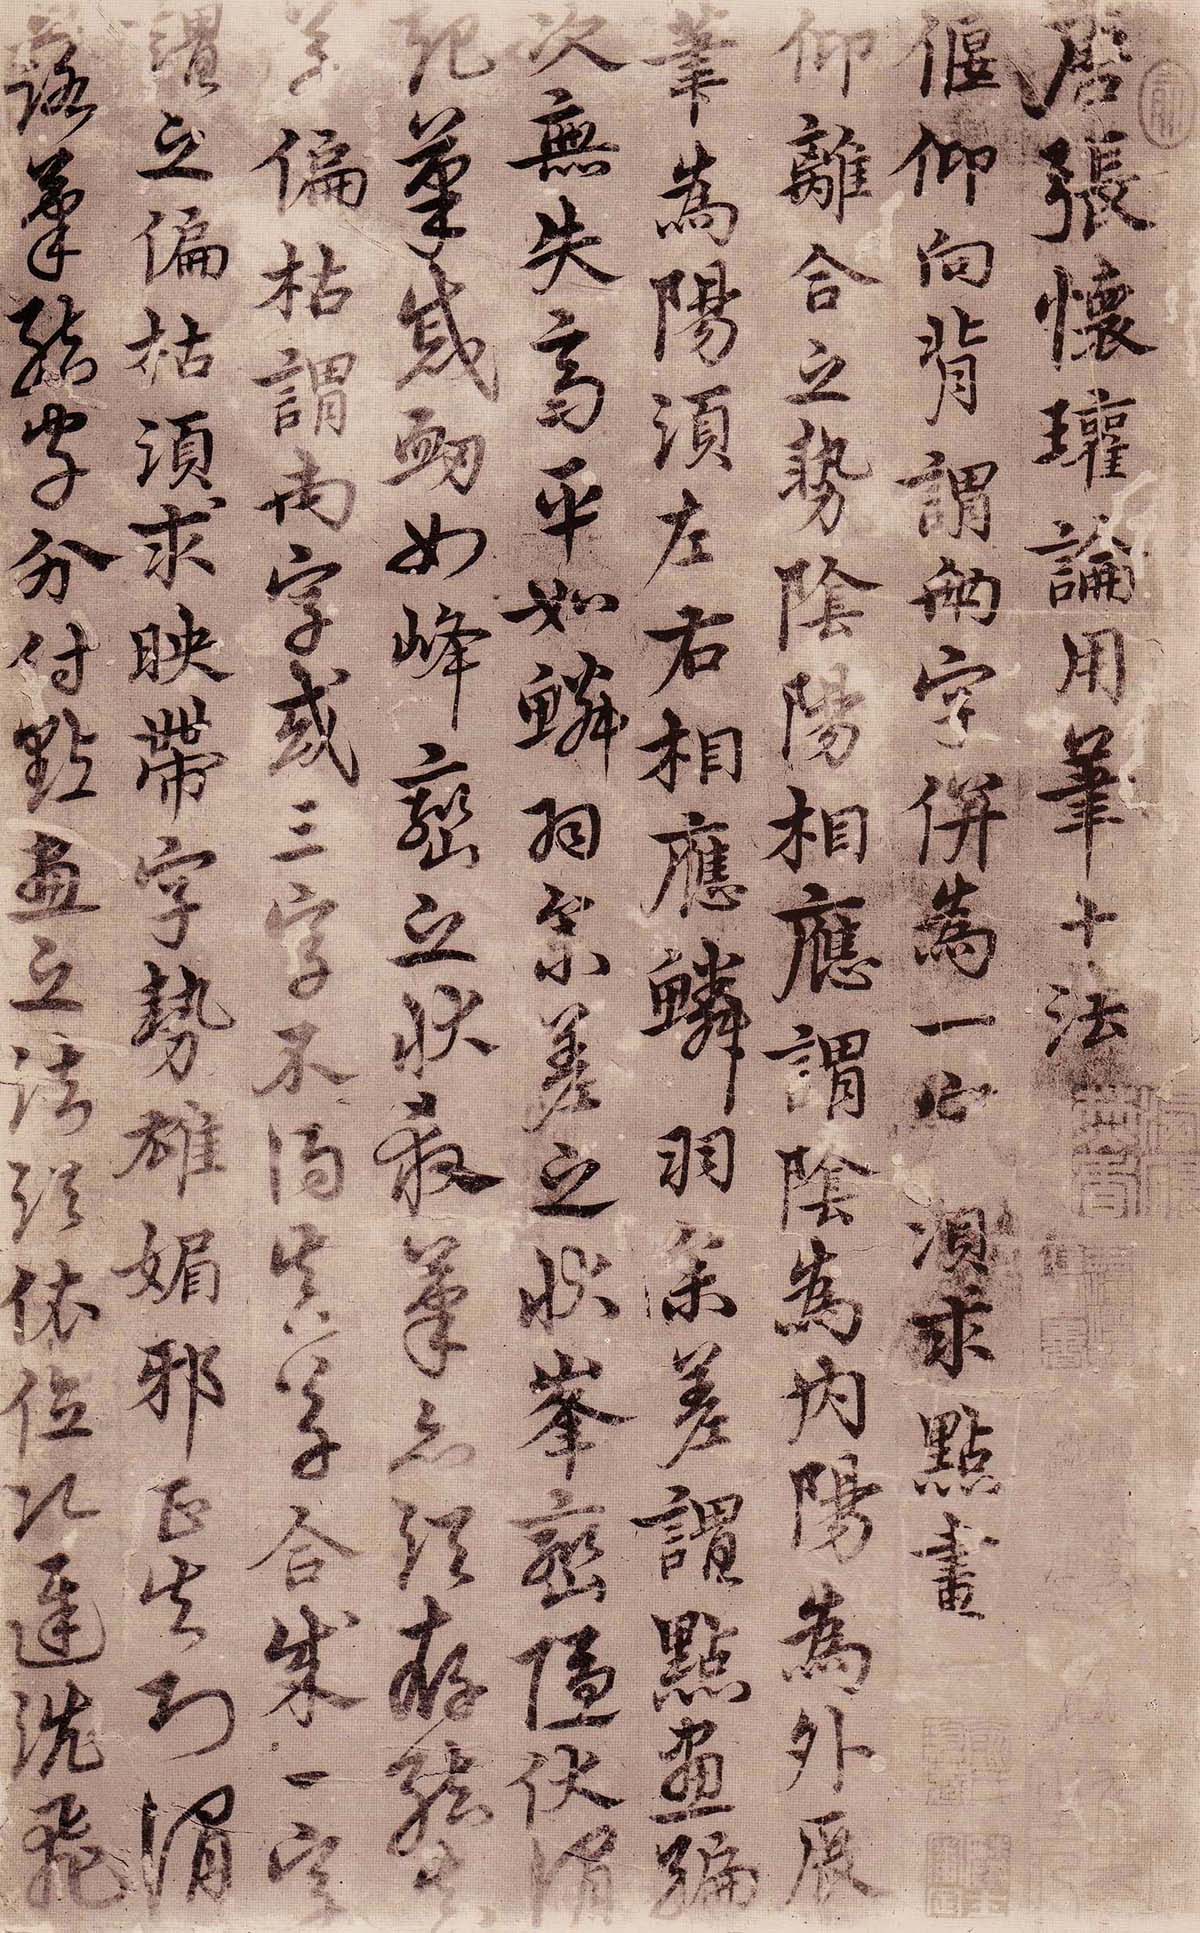 唐張懷瓘論用筆十法
偃仰向背謂兩字併為一字須求點畫
仰離合之勢陰陽相應謂陰為內陽為外展
筆為陽須左右相應鱗羽參差謂點畫編
次無失高平如鱗羽參差之狀峯巒隱伏謂
起筆蹙衄如峰巒之狀殺筆亦須存結真
草偏枯謂兩字或三字不得真草合成一字
謂之偏枯須求映帶字勢雄媚邪正失則謂
落筆結字分付點畫之法須依位次遲澀飛